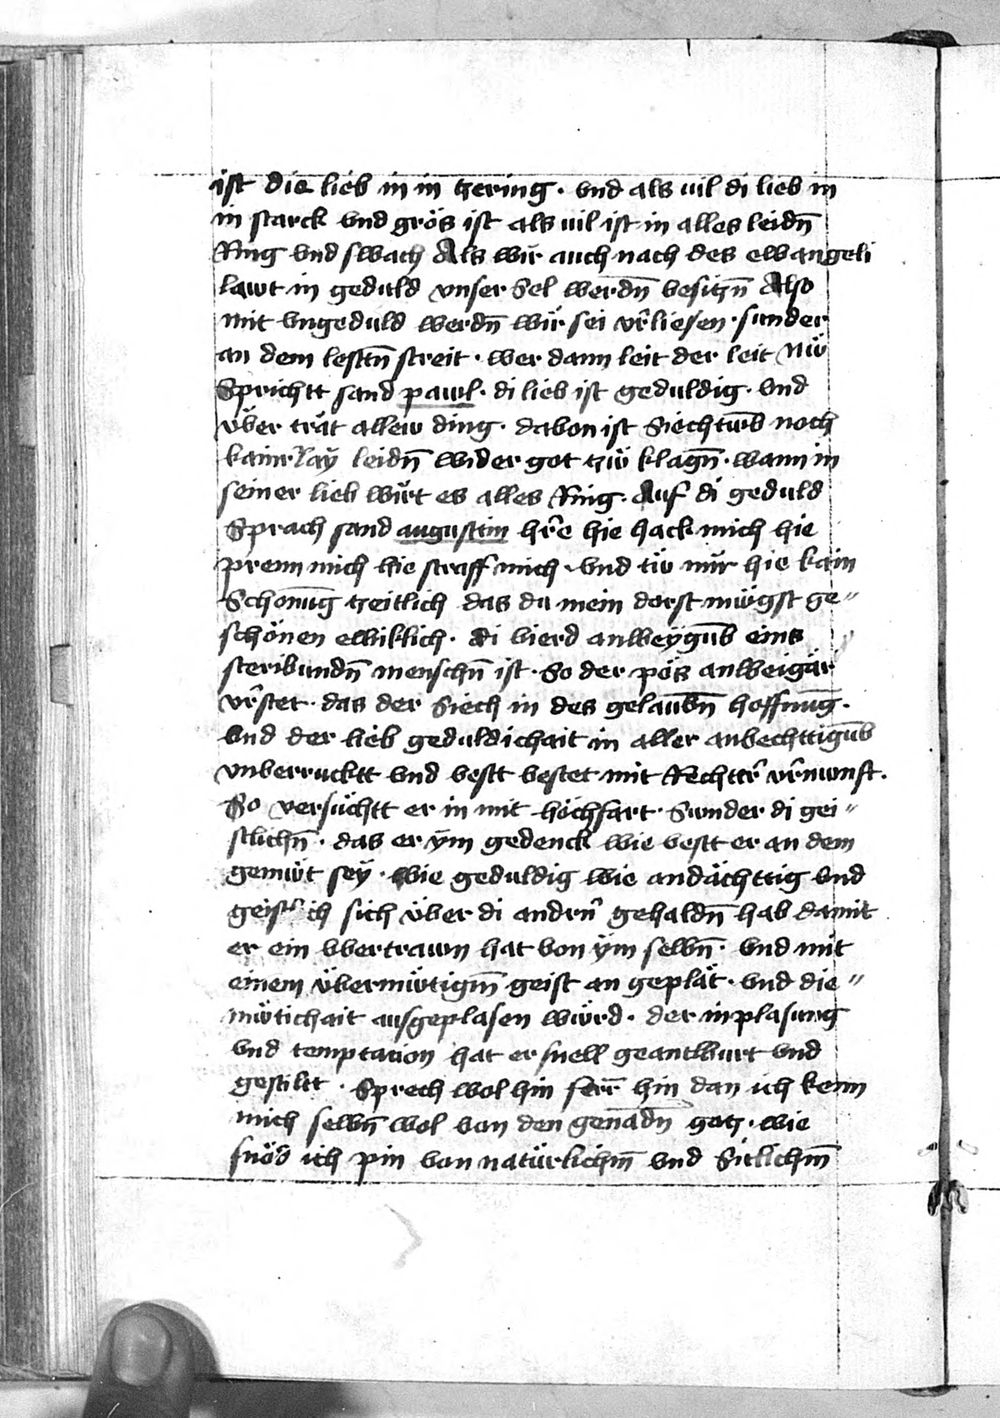 ist die lieb in in tzering · vnd als uil di lieb in
in starck vnd grös ist als uil ist in alles leidn̄
Ring vnd swach Als wir auch nach des ewangeli
lawt in geduld vnser Sel werdn̄ besitzn̄ Also
mit vngeduld werdn̄ wir sei vr̄liesen · sunder
an dem lestn̄ streit · wer dann leit der leit Nw̋
Sprichtt sand pawl · di lieb ist geduldig · vnd
v̈ber trät allew ding · dabon ist Siechtwb̄ noch
kainrlaÿ leidn̄ wider got tzw̋ klagn̄ · wann in
seiner lieb wirt es alles Ring · Auf di geduld
Sprach sand augustin hr̄e hie hack mich hie
prenn mich hie straff mich · vnd tw̋ mir hie kain
Schonūg tzeitlich das du mein dorst mügst ge„
schönen ewiklich · di bierd anbeygūb eins
steribundn̄ menschn̄ ist · So der pös anbeigär
vr̄stet · das der Siech in des gelaubn̄ hoffnūg ·
vnd der lieb geduldichait in aller anbechttigūb
vnberrucktt vnd bestt bestet mit Rechttr̄ vr̄nunft ·
So versüchtt er in mit höchfart · Sunder di gei„
stlichn̄ · das er ÿm gedenck wie bestt er an dem
gemüt seÿ · wie geduldig wie andächttig vnd
geistlich sich v̈ber di andrn̄ gehaldn̄ hab damit
er ein vbertrawn hat von ÿm selbn̄ · vnd mit
einem v̈bermütigm̄ geist an geplät · vnd die„
mütichait ausgeplasen würd · der inplasung
vnd temptacion hat er snell geantburt vnd
gestiltt · Sprech wol hin ferr̄ hin dan ich kenn
mich selbn̄ wol von den genādn gotz · wie
snöd ich pin von natürlichm̄ vnd Sitlichm̄